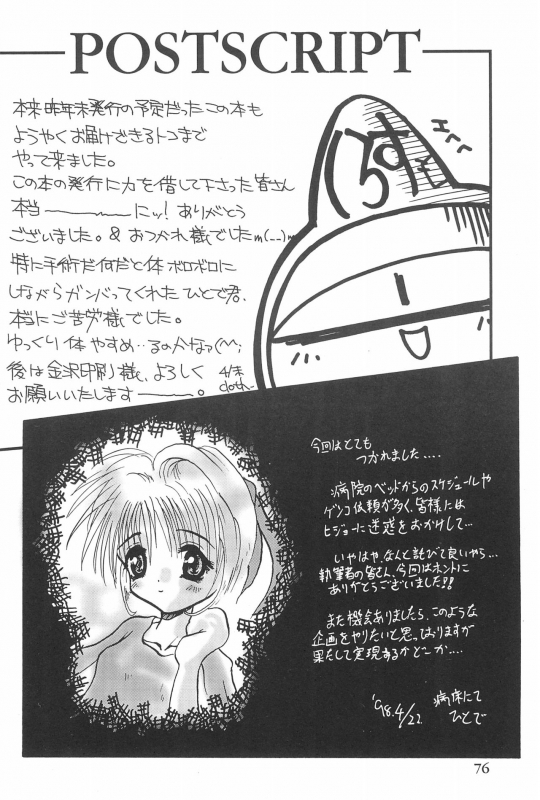 POSTSCRIPT
本来昨年末発行の予定だったこの本も
ようやくお届けできるトコまで
やって来ました。
この本の発行に力を借して下さった皆さん
本当——〜—にッ!ありがとう
ございました。& おつかれ様でしたm(__)m
特に手術だ何だと体ボロボロに
しながらガンバってくれたひとで君、
本当にご苦労様でした。
ゆっくり体やすめ…るのかなっ(^^;
後は金沢印刷様、よろしく
お願いいたします———。
4/末
cloth-
くろす
エヘヘ
今回はとても
つかれました....
病院のベッドからのスケジュールや
ゲンコ依頼が多く、皆様には
ヒジョーに迷惑をおかけして...
いやはや、なんと詫びて良いやら...
執筆者の皆さん、今回はホントに
ありがとうございました!!
また機会ありましたら、このような
企画をやりたいと思っておりますが
果たして実現するかどーか....
'98.4/22.
病床にて
ひとで
76